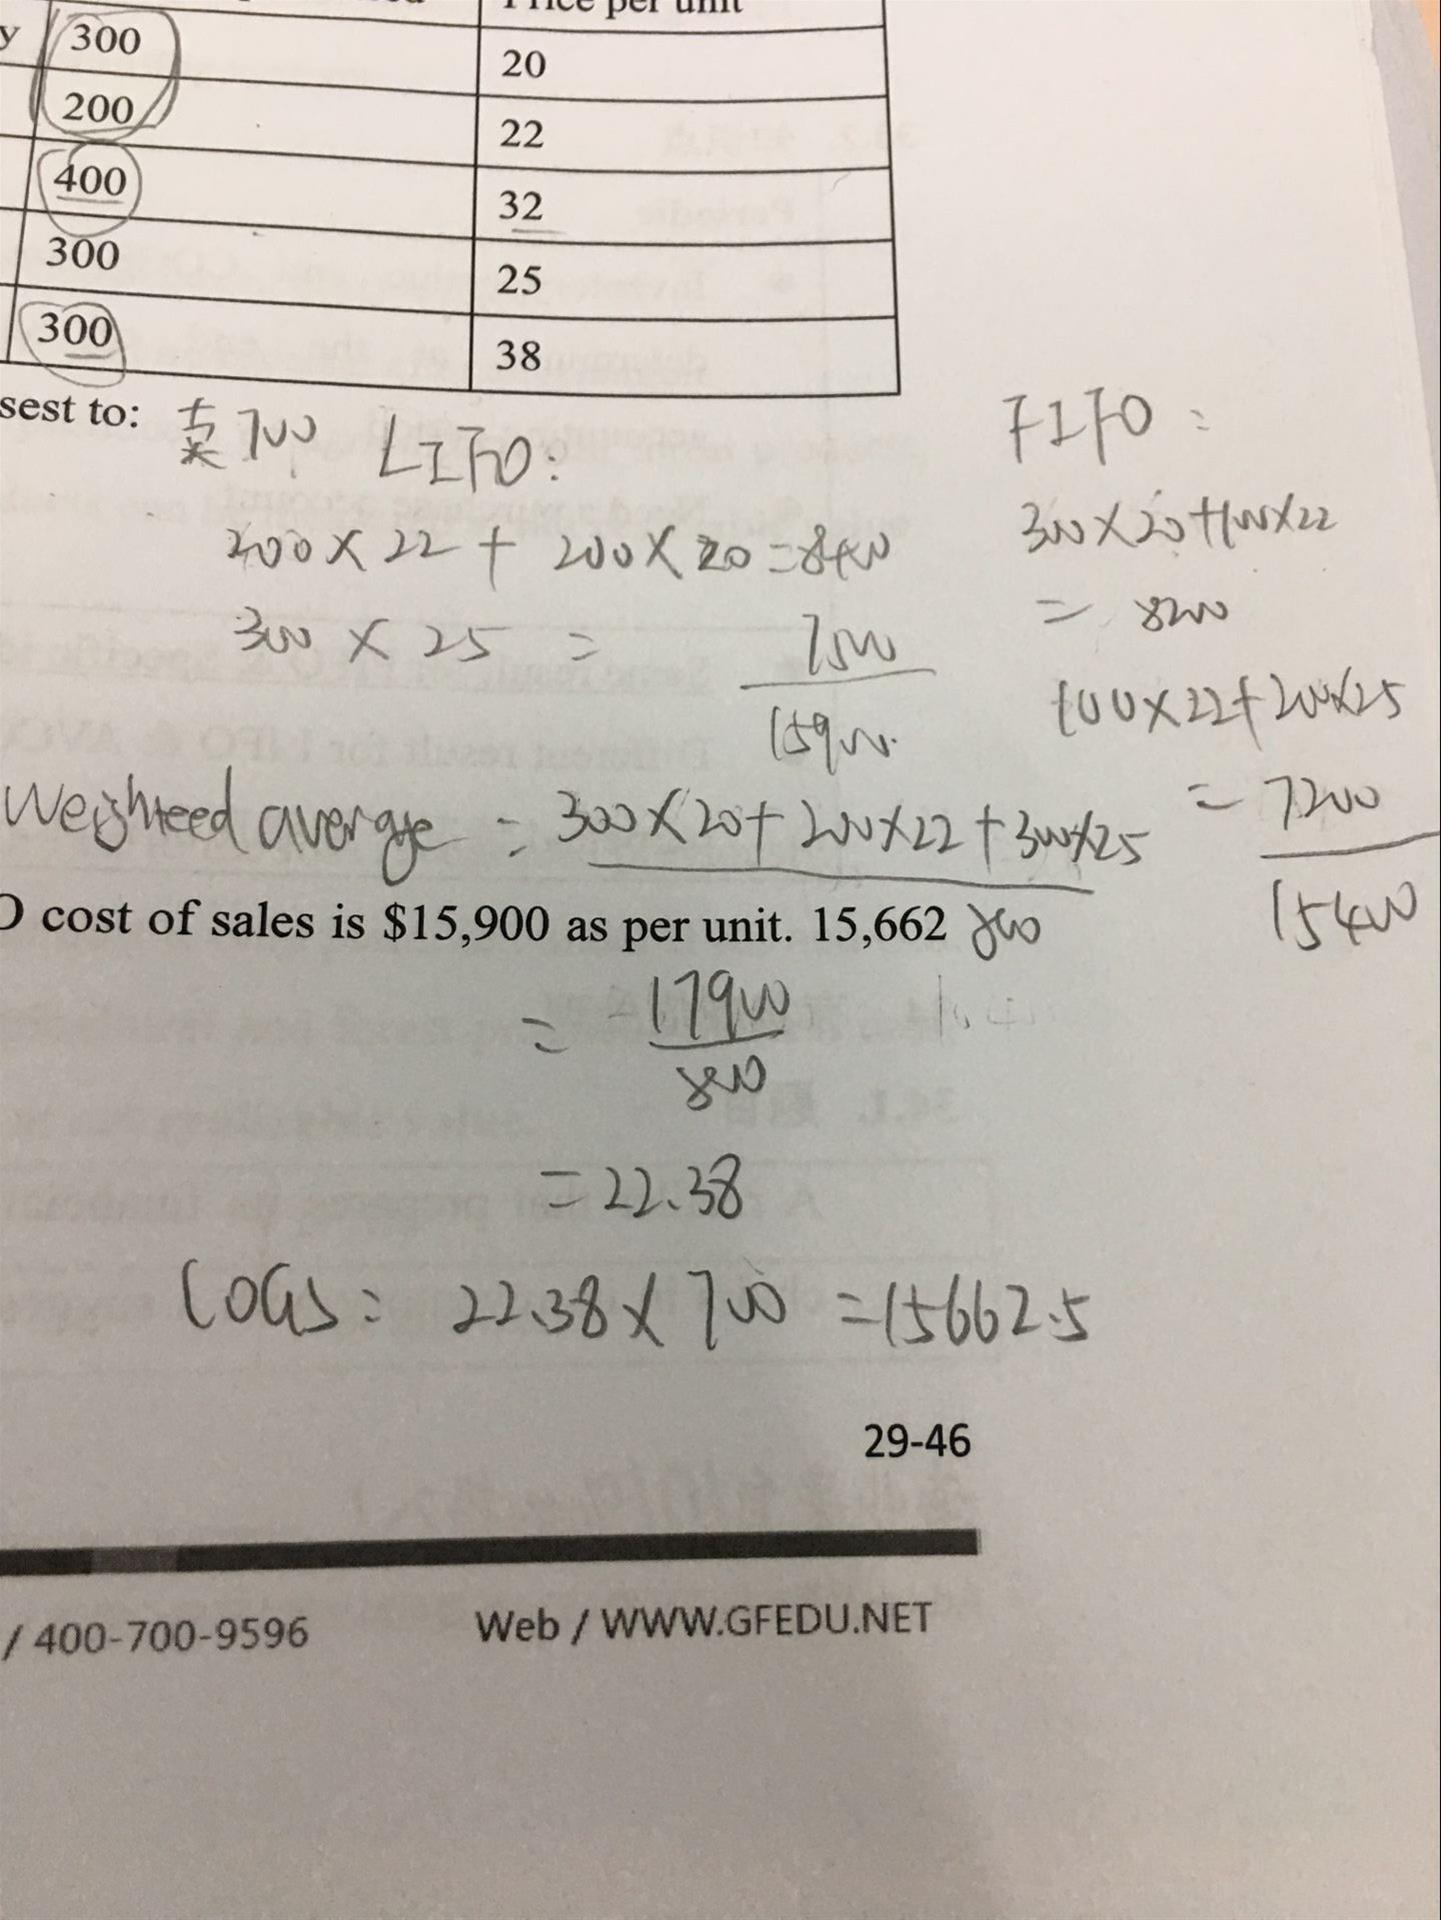 Price per unit
y 300 20
200 22
400 32
300 25
300 38
sest to: 卖700 LIFO:
FIFO:
200×22+200×20=8400
300×20+100×22
300×25= 7500
=8200
15900.
100×22+200×25
Weighteed averge = 300×20+200×22+300×25
=7200
O cost of sales is $15,900 as per unit. 15,662 800
15400
= 17900
800
=22.38
COGS: 22.38×700=15662.5
29-46
/ 400-700-9596 Web / WWW.GFEDU.NET